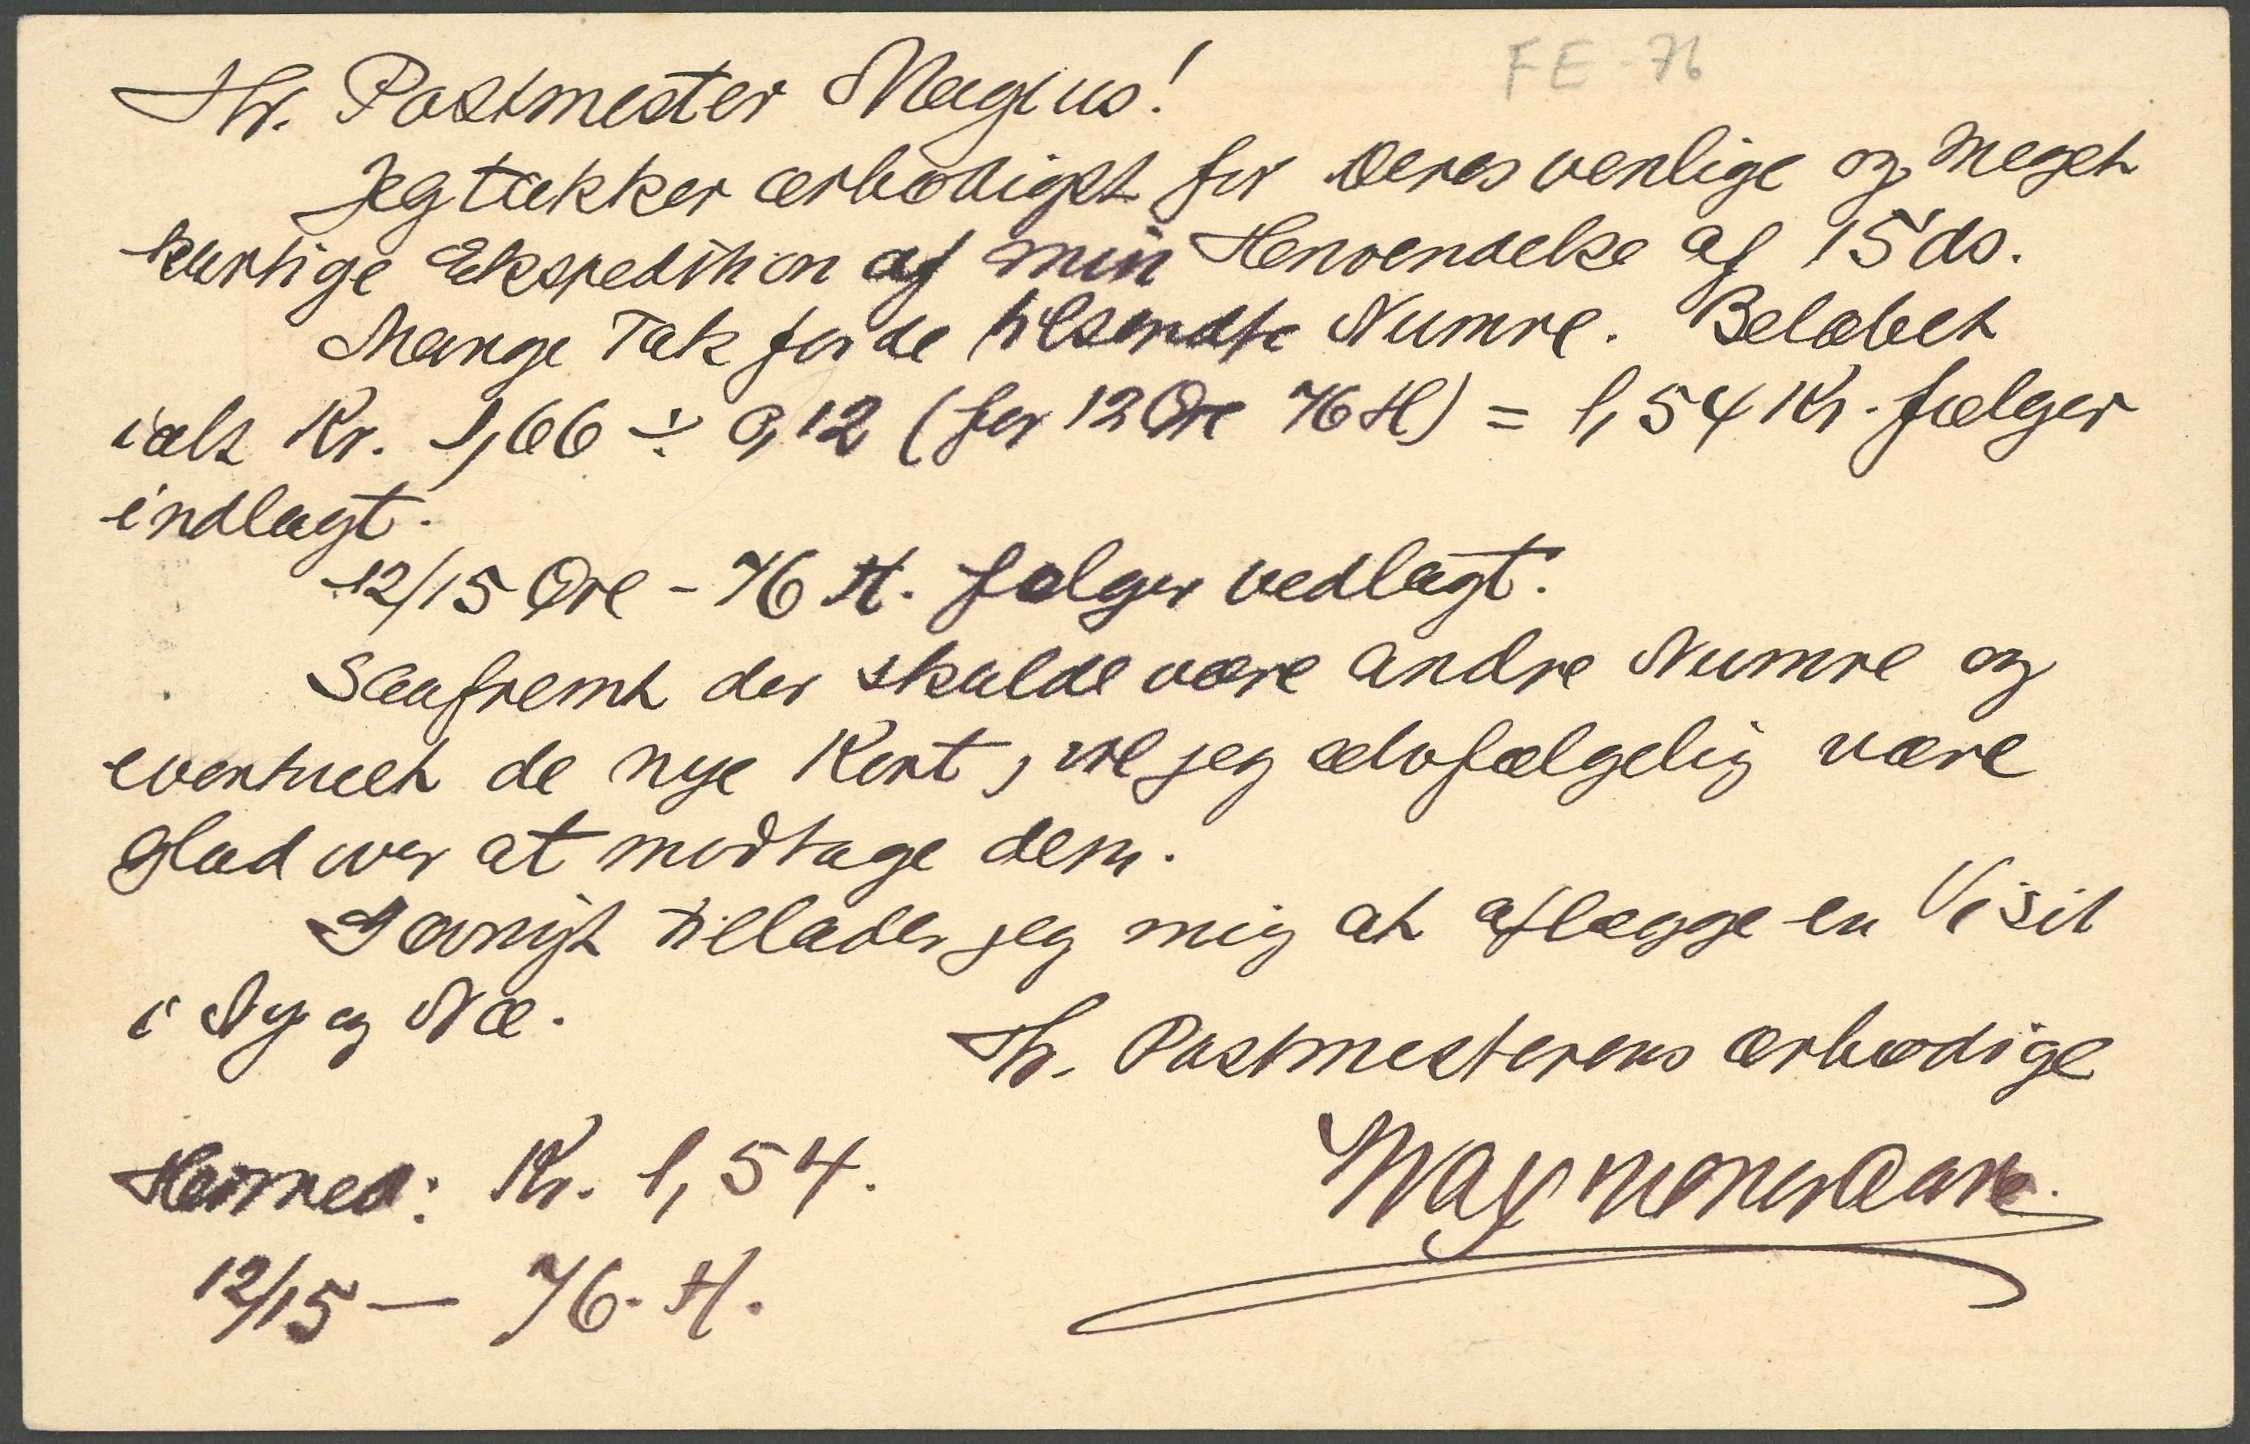 FE-76
Hr. Postmester Magius!
Jeg takker ærbødigst for Deres venlige og meget
hurtige Ekspedition af min Henvendelse af 15 ds.
Mange Tak for de tilsendte Numre. Beløbet
ialt Kr. 1,66 ÷ 0,12 (for 12 Øre 76 H) = 1,54 Kr. følger
indlagt.
12/15 Øre - 76 H. følger vedlagt.
Saafremt der skulde være andre Numre og
eventuelt de nye Kort, vil jeg selvfølgelig være
glad over at modtage dem.
Iøvrigt tillader jeg mig at aflægge en Visit
i Ny og Næ.
Hr. Postmesterens ærbødige
Hermed: Kr. 1,54.
12/15 — 76. H.